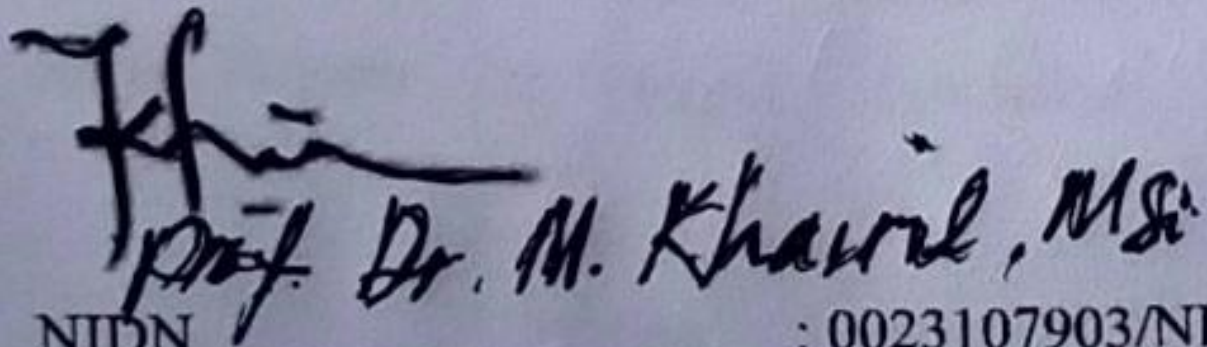 Prof. Dr. M. Khairil, MSi
NIDN : 0023107903/NI